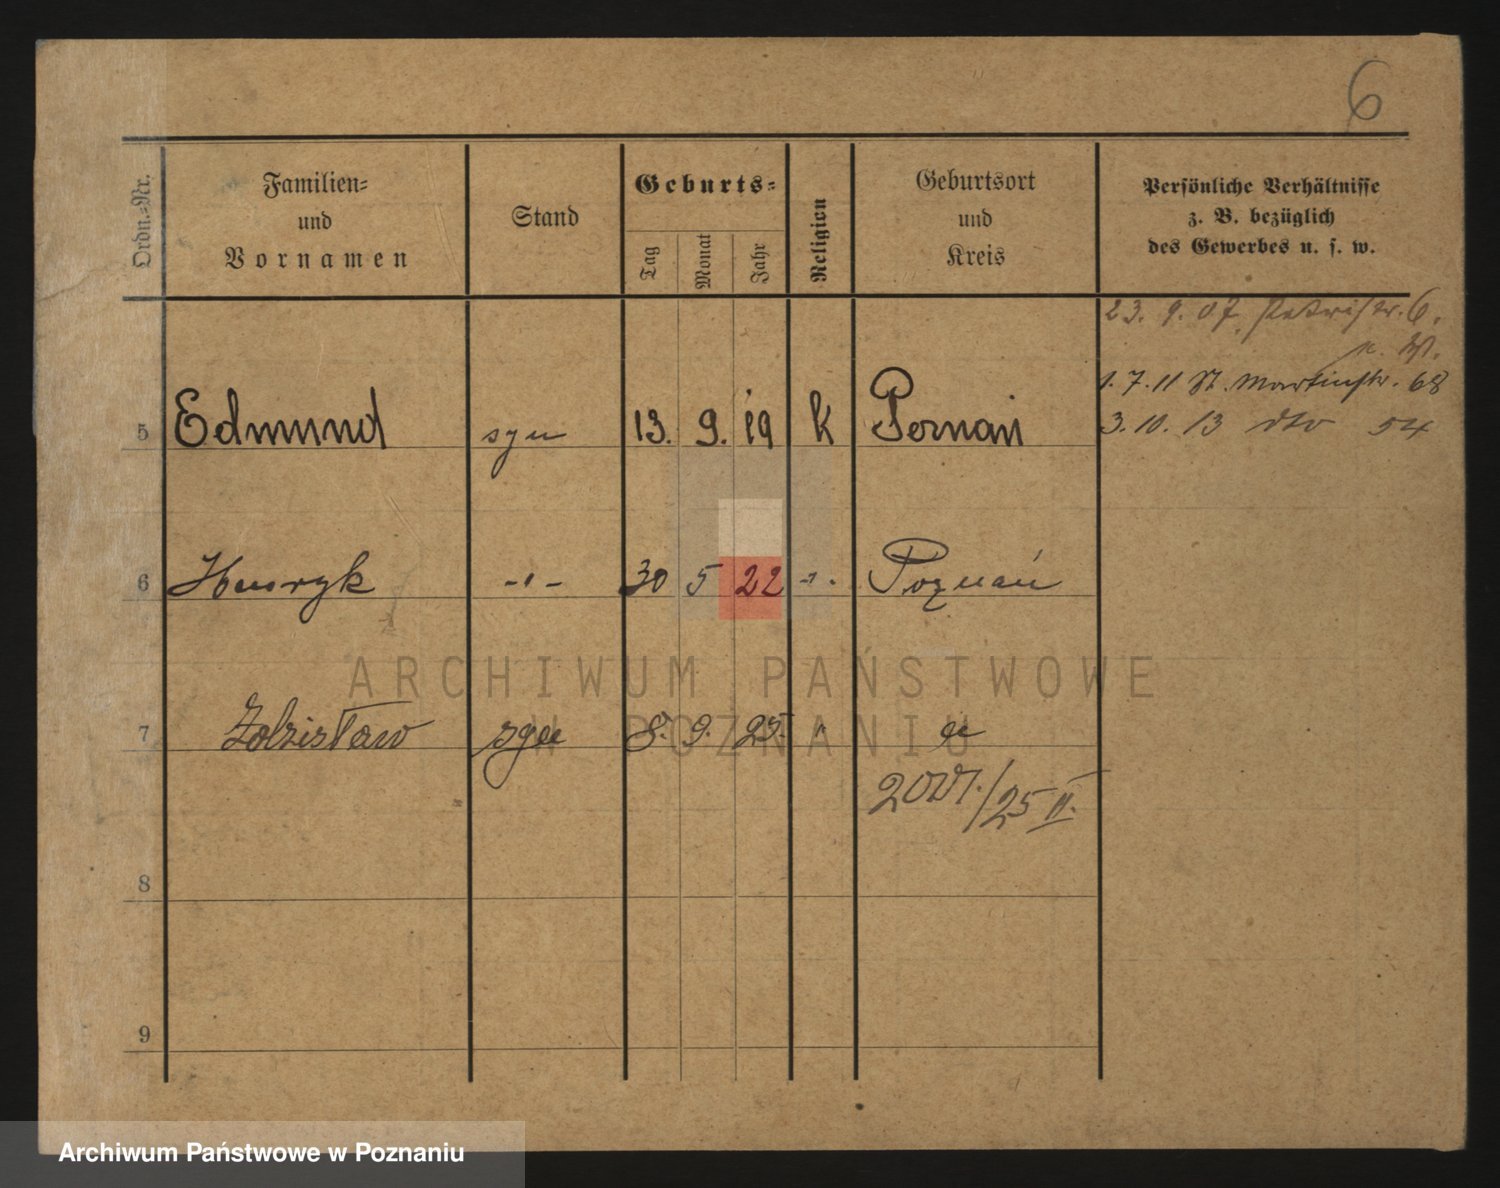 6
Ordn.=Nr.
Familien=
und
Vornamen
Stand
Geburts=
Tag
Monat
Jahr
Religion
Geburtsort
und
Kreis
Persönliche Verhältnisse
z. B. bezüglich
des Gewerbes u. s. w.
23. 9. 07. Petristr. 6.
1. 7. 11 St. Martinstr. 68
3. 10. 13 dto 54
5 Edmund syn 13. 9. 19 k Poznań
6 Henryk -"- 30 5 22 -"- Poznań
7 Zdzisław syn 8. 9. 25. "
25 II.
8
9
ARCHIWUM PAŃSTWOWE
W POZNANIU
Archiwum Państwowe w Poznaniu